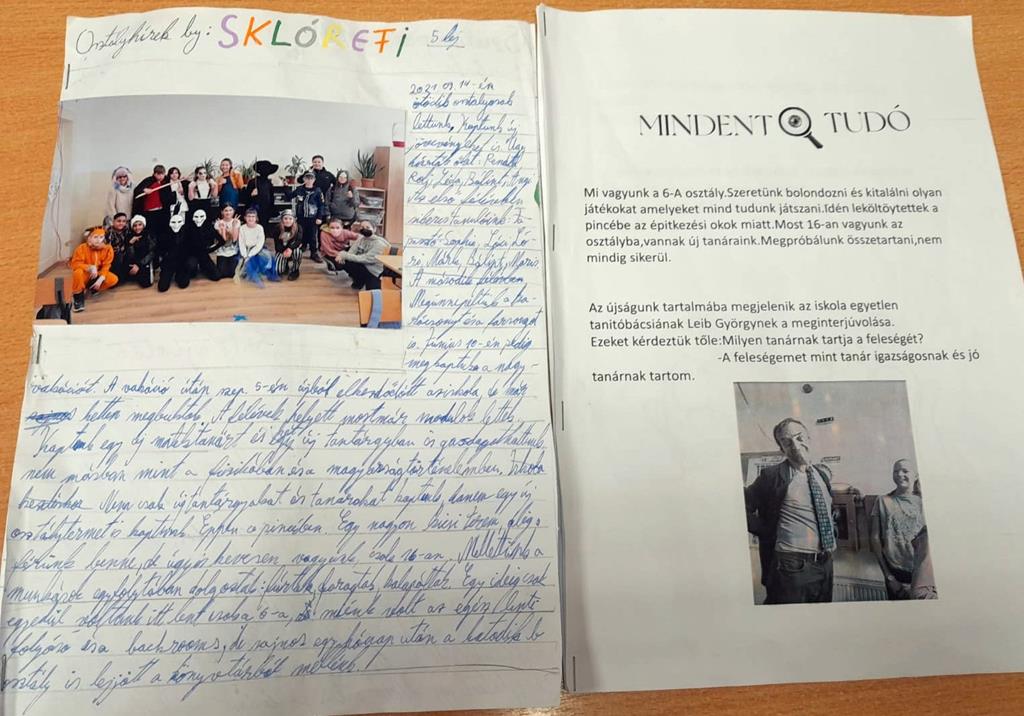 Osztályhírek by: SKLÓREFI 5 lej
2021 09.14-én
ötödik osztályosok
lettünk, kaptunk új
jövevényeket is. Úgy
Márk, Bálint, Maris.
A második félévben
Megünnepeltük a ka-
rácsonyt és a farsangot
is. Június 10-én pedig
megkaptuk a nagy-
vakációt. A vakáció után szep. 5-én újból elkezdődött az iskola, de már
hetten megbuktak. A félévek helyett mostmár modulok lettek.
Kaptunk egy új matektanárt és egy új tantárgyban is gazdagodhattunk
nem másban mint a fizikában és a magyarságtörténelemben. Iskola
Nem csak új tantárgyakat és tanárokat kaptunk, hanem egy új
osztálytermet is kaptunk. Éppen a pincében. Egy nagyon kicsi terem, alig
férünk benne, de úgy is kevesen vagyunk, csak 16-an. Mellettünk a
munkások egyfolytában dolgoztak: fúrtak, faragtak, kalapáltak. Egy ideig csak
egyedül voltunk itt lent csak a 6-a, miénk volt az egész lenti
folyosó és a backrooms, de sajnos egy hónap után a hatodik b
osztály is lejött a könyvtárból mellénk.
MINDENT TUDÓ
Mi vagyunk a 6-A osztály.Szeretünk bolondozni és kitalálni olyan
játékokat amelyeket mind tudunk játszani.Idén leköltöytettek a
pincébe az épitkezési okok miatt.Most 16-an vagyunk az
osztályba,vannak új tanáraink.Megpróbálunk összetartani,nem
mindig sikerül.
Az újságunk tartalmába megjelenik az iskola egyetlen
tanitóbácsiának Leib Györgynek a meginterjúvolása.
Ezeket kérdeztük tőle:Milyen tanárnak tartja a feleségét?
-A feleségemet mint tanár igazságosnak és jó
tanárnak tartom.